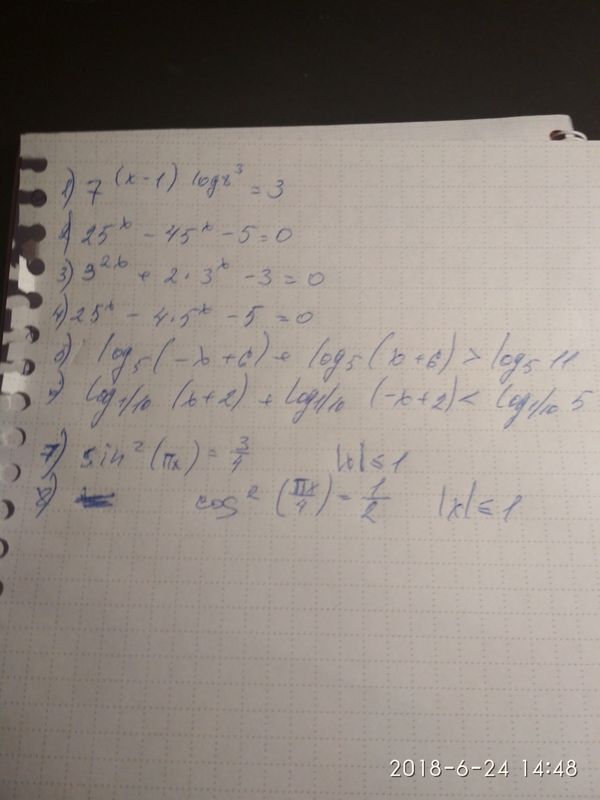 1) 7^(x-1) log₂3 = 3
2) 25^x - 45^x - 5 = 0
3) 3^2x + 2·3^x - 3 = 0
4) 25^x - 4·5^x - 5 = 0
5) log₅(-x+6) + log₅(x+6) > log₅ 11
log1/10 (x+2) + log1/10 (-x+2) < log1/10 5
7) sin²(πx) = 3/4 |x| ≤ 1
8) cos²(πx/4) = 1/2 |x| ≤ 1
2018-6-24 14:48